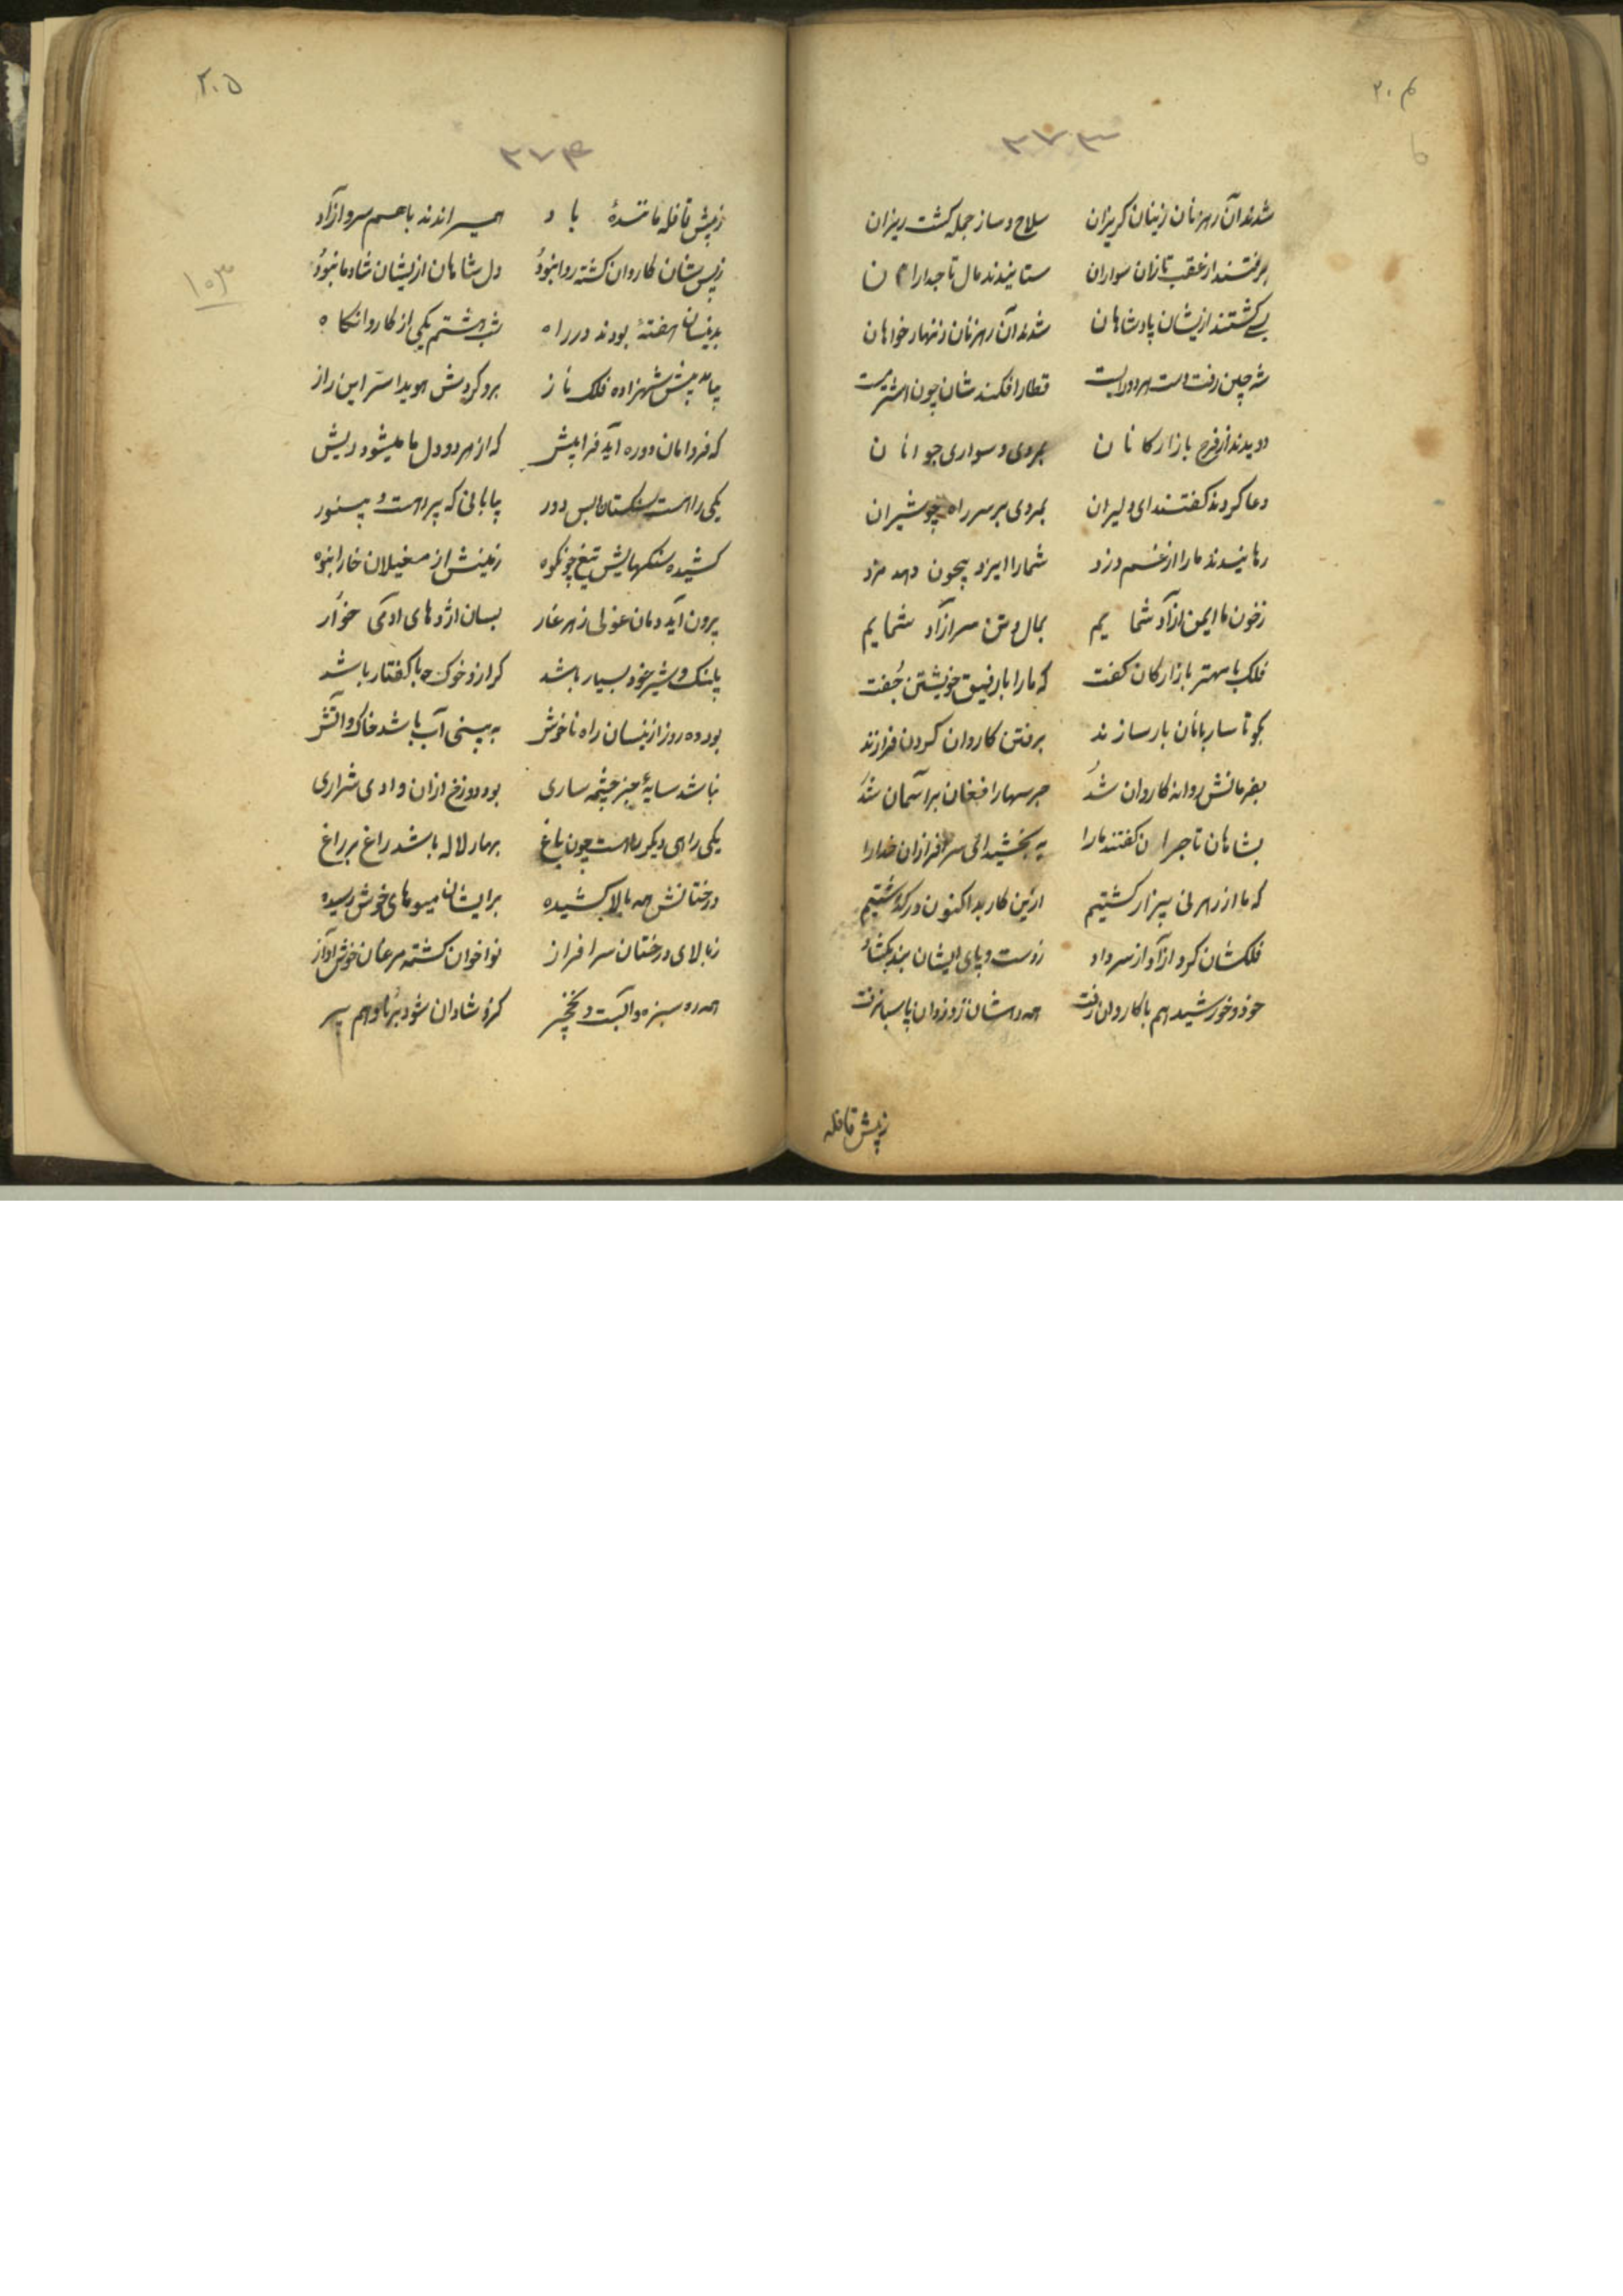 ۲۰۴
۳۷۳
شدند آن رهزنان زینان کریزان سلاح و ساز جمله کشت ریزان
برفتند از عقب تازان سواران ستانیدند مال تاجداران
بسے کشتند ازیشان پادشاهان شدند آن رهزنان زنهار خواهان
شه چین رفت دست هر دو را بست قطار افکند شان چون اشتر مست
دویدند از فرح بازارکانان بمردی و سواری جوانان
دعا کردند کفتند ای دلیران بمردی بر سر راه چو شیران
رهانیدند ما را از غم دزد شما را ایزد بیچون دهد مزد
زخون ما ایمن ازآد شماییم بمال و تن سرازآد شماییم
فلک با مهتر بازارکان کفت که ما را با رفیق خویشتن جفت
بکو تا ساربانان بار سازند برفتن کاروان کردن فرازند
بفرمانش روانه کاروان شد جرسها را فغان بر آسمان شد
بشاهان تاجران کفتند ما را به بخشید ای سرافرازان خدا را
که ما از رهزنی بیزار کشتیم ازین کار بد اکنون در کذشتیم
فلکشان کرد ازآد از سر داد زدست و پای ایشان بند بکشاد
خود و خورشید هم با کاروان رفت همه رهشان ز دزدان پاسبان رفت
زپیش قافله
۲۰۵
۳۷۴
۱۰۳
زپیش قافله مانندهٔ باد همیراندند باهم سرو ازآد
زپس شان کاروان کشته روا نبود دل شاهان ازیشان شادمان بود
بدینسان هفتهٔ بودند در راه شب هشتم یکی از کاروانکاه
بیامد پیش شهزاده فلک ناز برو کردش هویدا سر این راز
که فردامان دو ره آید فرا پیش که از هر دو دل ما میشود ریش
یکی راهست سنکستان بس دور بیابانی که پر راهست و
کشیده سنکهایش تیغ چون کوه زمینش از مغیلان خار انبوه
برون آید دمان غولی ز هر غار بسان اژدهای ادمی خوار
پلنک و شیر خود بسیار باشد کراز و خوک با کفتار باشد
بود ده روز ازینسان راه ناخوش به بینی آب باشد خاک و آتش
نباشد سایهٔ جز چشمه ساری بود دوزخ ازان وادی شراری
یکی راهی دیکر راهست چون باغ بهار لاله باشد راغ بر راغ
درختانش همه بالا کشیده برایشان میوهای خوش رسیده
زبالای درختان سرافراز نوا خوان کشته مرغان خوش آواز
همه ره سبزه و آبست و نخچیر کزو شادان شود برنا و هم پیر